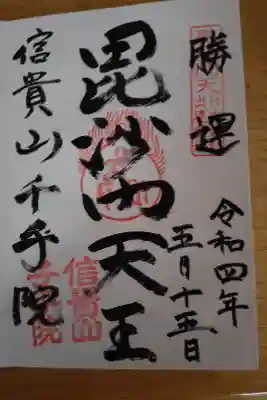 勝運
令和四年
五月十五日
毘沙門天王
信貴山千手院
信貴山
千手院